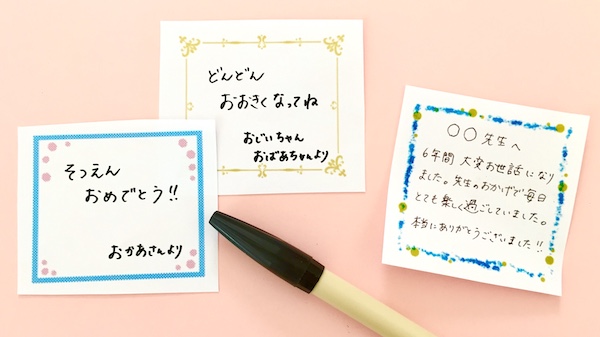 そつえん
おめでとう!!
おかあさんより
どんどん
おおきくなってね
おじいちゃん
おばあちゃんより
○○先生へ
6年間 大変お世話になり
ました。先生のおかげで毎日
とても楽しく過ごしていました。
本当にありがとうございました!!